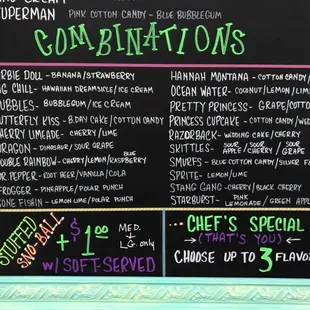 SUPERMAN PINK COTTON CANDY - BLUE BUBBLEGUM
COMBINATIONS
RBIE DOLL - BANANA/STRAWBERRY
G CHILL - HAWAIIAN DREAMSICLE/ICE CREAM
UBBLES - BUBBLEGUM/ICE CREAM
UTTERFLY KISS - B.DAY CAKE/COTTON CANDY
HERRY LIMEADE - CHERRY/LIME
RAGON - DINOSAUR/SOUR GRAPE
OUBLE RAINBOW - CHERRY/LEMON/BLUE RASPBERRY
R. PEPPER - ROOT BEER/VANILLA/COLA
FROGGER - PINEAPPLE/POLAR PUNCH
ONE FISHIN - LEMON LIME/POLAR PUNCH
HANNAH MONTANA - COTTON CANDY/
OCEAN WATER - COCONUT/LEMON/LIM
PRETTY PRINCESS - GRAPE/COTTO
PRINCESS CUPCAKE - COTTON CANDY/WED
RAZORBACK - WEDDING CAKE/CHERRY
SKITTLES - SOUR APPLE/SOUR CHERRY/SOUR GRAPE
SMURFS - BLUE COTTON CANDY/SILVER F
SPRITE - LEMON/LIME
STANG GANG - CHERRY/BLACK CHERRY
STARBURST - PINK LEMONADE/GREEN APPLE
STUFFED
SNO-BALL
+ $1.00 MED. + LG. only
W/ SOFT-SERVED
CHEF'S SPECIAL
(THAT'S YOU)
CHOOSE UP TO 3 FLAVO